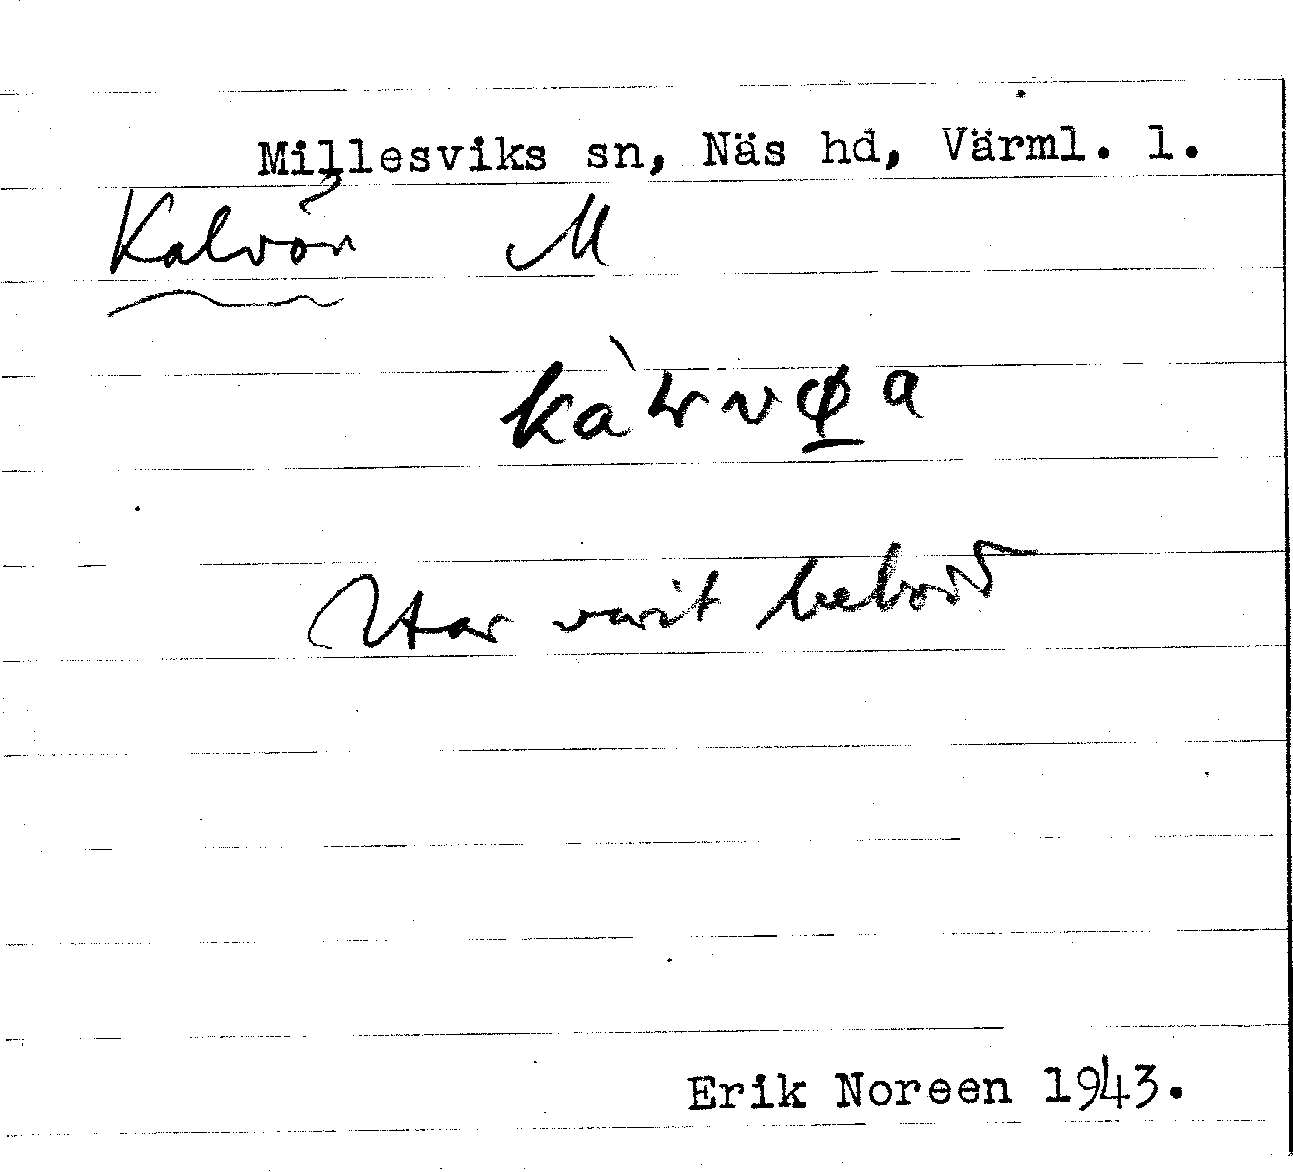 Millesviks sn, Näs hd, Värml. l.
Kalvön M
Har varit bebodd
Erik Noreen 1943.